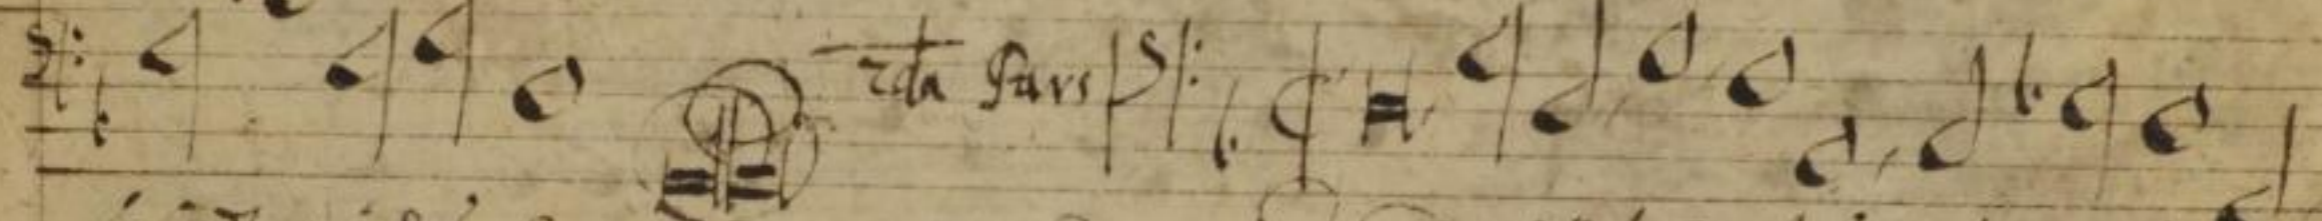 2da Pars